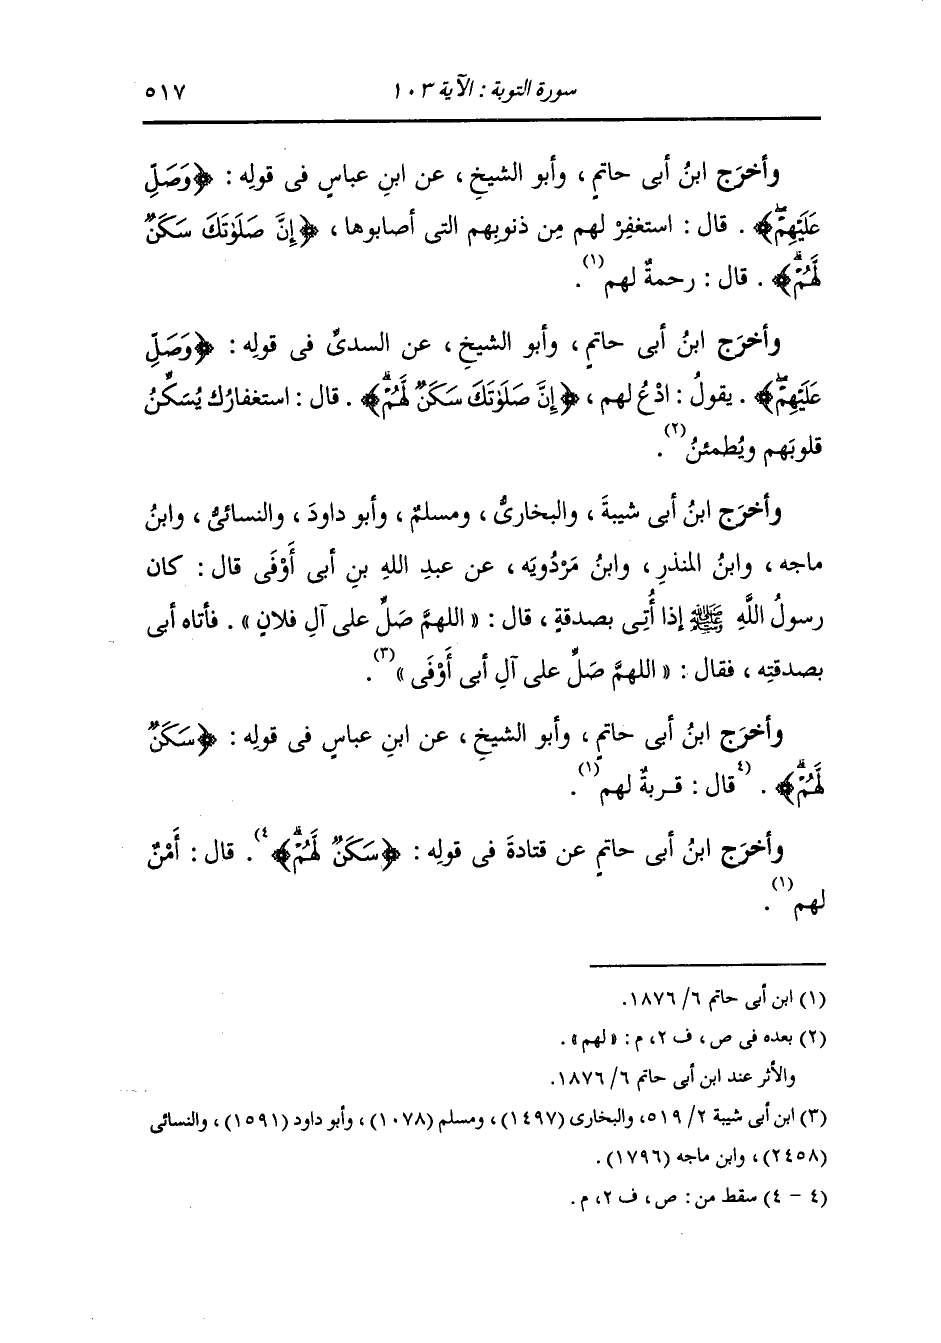 سورة التوبة : الآية ١٠٣ ٥١٧
وأخرَج ابنُ أبى حاتمٍ ، وأبو الشيخِ ، عن ابنِ عباسٍ فى قولِه : ﴿وَصَلِّ
عَلَيْهِمْۖ﴾ . قال : استغفِرْ لهم مِن ذنوبِهم التى أصابوها ، ﴿إِنَّ صَلَوٰتَكَ سَكَنٌ
لَّهُمْۗ﴾ . قال : رحمةٌ لهم(١).
وأخرَج ابنُ أبى حاتمٍ ، وأبو الشيخِ ، عن السدىِّ فى قولِه : ﴿وَصَلِّ
عَلَيْهِمْۖ﴾ . يقولُ : ادْعُ لهم ، ﴿إِنَّ صَلَوٰتَكَ سَكَنٌ لَّهُمْۗ﴾ . قال : استغفارُك يُسَكِّنُ
قلوبَهم ويُطمئنُ(٢).
وأخرَج ابنُ أبى شيبةَ ، والبخارىُّ ، ومسلمٌ ، وأبو داودَ ، والنسائىُّ ، وابنُ
ماجه ، وابنُ المنذرِ ، وابنُ مَرْدُويَه ، عن عبدِ اللهِ بنِ أبى أَوْفَى قال : كان
رسولُ اللَّهِ ﷺ إذا أُتِى بصدقةٍ ، قال : « اللهمَّ صَلِّ على آلِ فلانٍ » . فأتاه أبى
بصدقتِه ، فقال : « اللهمَّ صَلِّ على آلِ أبى أَوْفَى »(٣).
وأخرَج ابنُ أبى حاتمٍ ، وأبو الشيخِ ، عن ابنِ عباسٍ فى قولِه : ﴿سَكَنٌ
لَّهُمْۗ﴾ . (٤قال : قربةٌ لهم(١).
وأخرَج ابنُ أبى حاتمٍ عن قتادةَ فى قولِه : ﴿سَكَنٌ لَّهُمْۗ﴾٤). قال : أَمْنٌ
لهم(١).
(١) ابن أبى حاتم ٦/ ١٨٧٦.
(٢) بعده فى ص ، ف ٢، م : « لهم » .
والأثر عند ابن أبى حاتم ٦/ ١٨٧٦.
(٣) ابن أبى شيبة ٢/ ٥١٩، والبخارى (١٤٩٧) ، ومسلم (١٠٧٨) ، وأبو داود (١٥٩١) ، والنسائى
(٢٤٥٨) ، وابن ماجه (١٧٩٦) .
(٤ - ٤) سقط من : ص ، ف ٢، م .